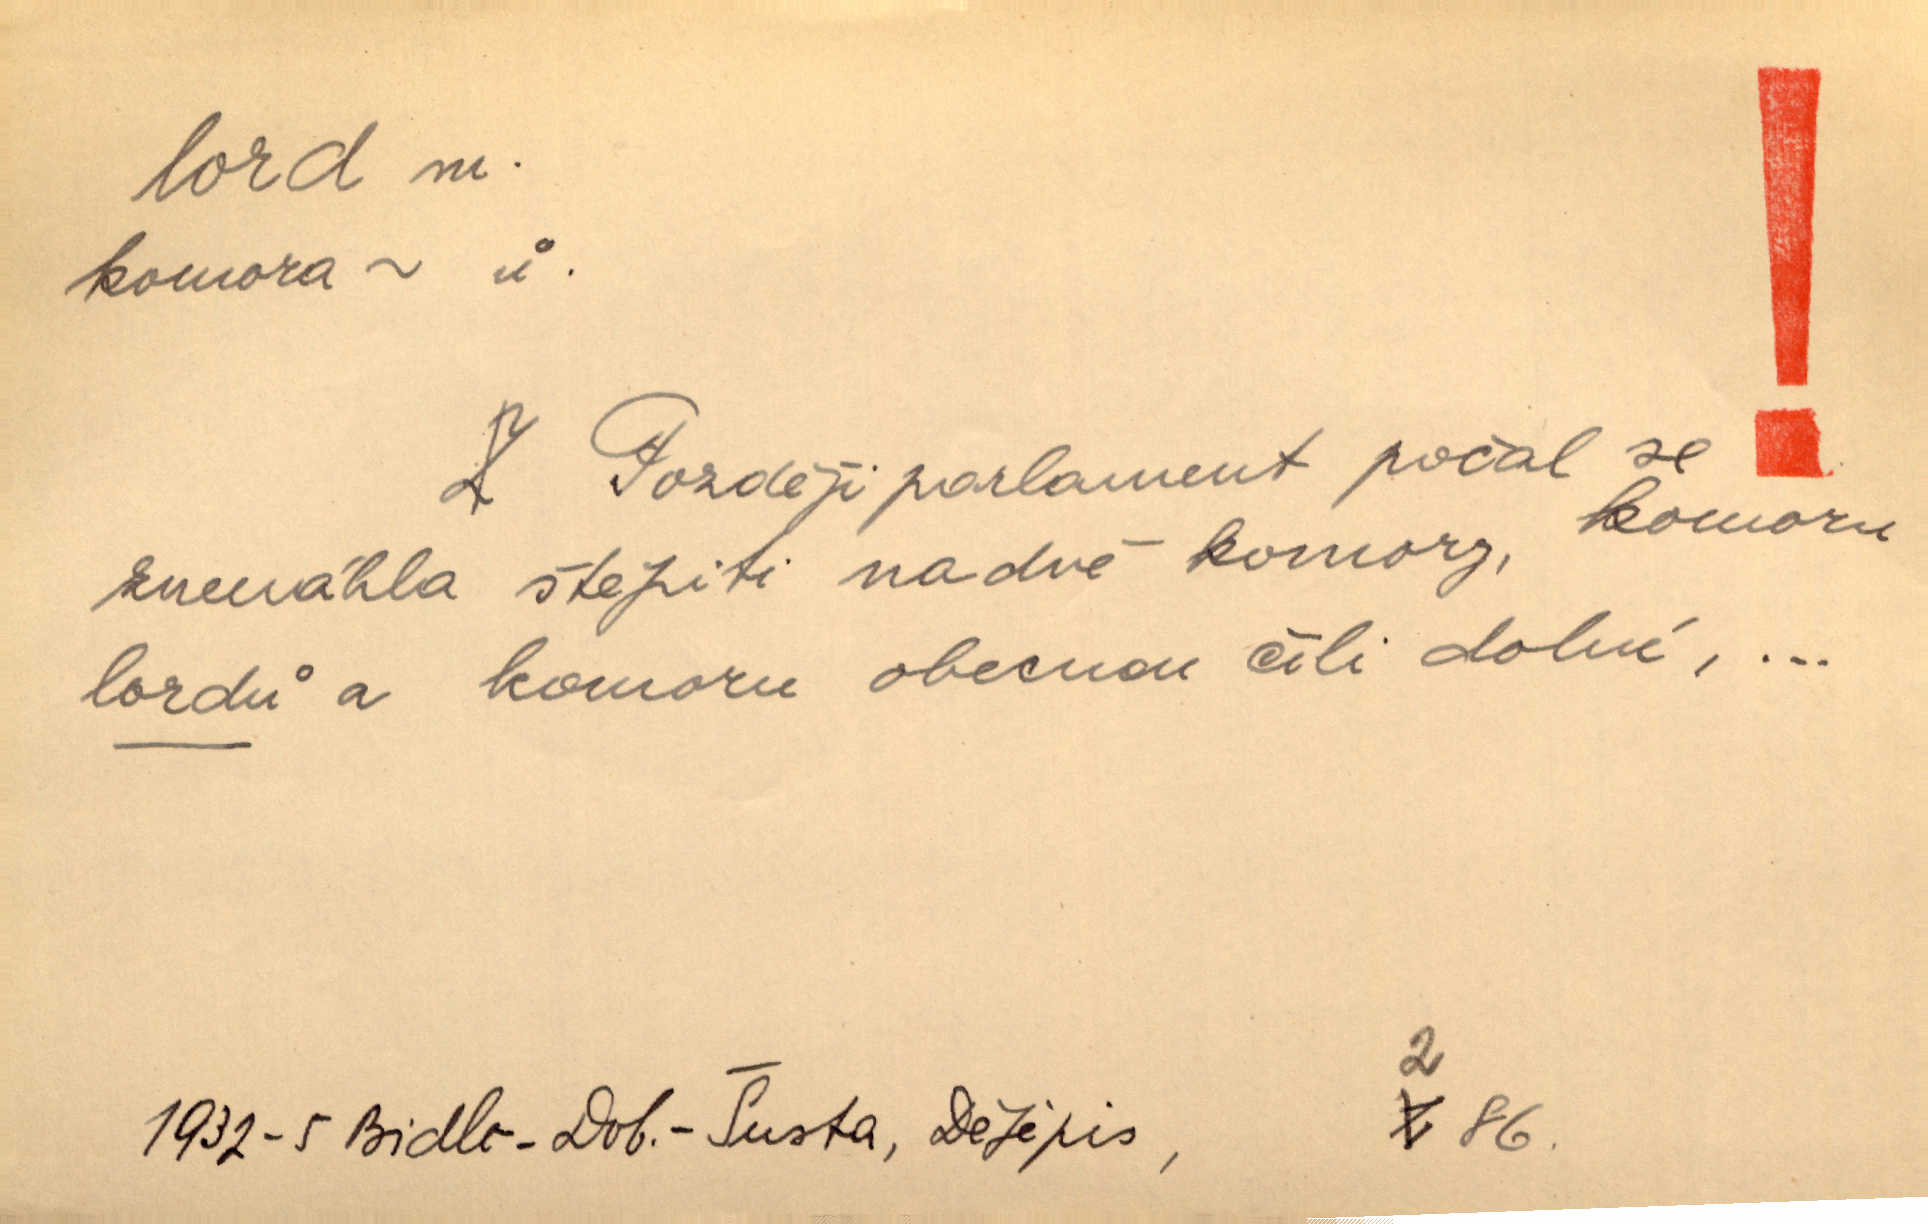 lord m.
komora ~ ů.
Později parlament počal se
znenáhla štěpiti na dvě komory, komoru
lordů a komoru obecnou čili dolní, ...
2
1932-5 Bidlo-Dob.-Šusta, Dějepis, 86.
!